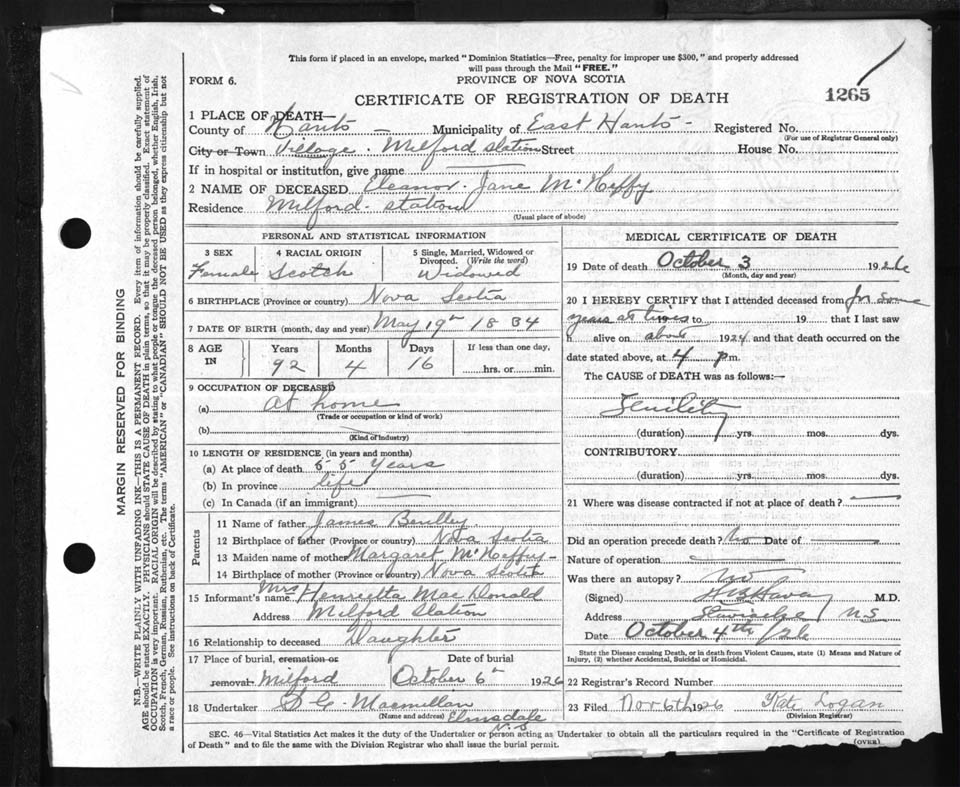 This form if placed in an envelope, marked "Dominion Statistics—Free, penalty for improper use $300," and properly addressed
will pass through the Mail "FREE."
FORM 6.
PROVINCE OF NOVA SCOTIA
CERTIFICATE OF REGISTRATION OF DEATH
1265
1 PLACE OF DEATH—
County of Hants Municipality of East Hants Registered No.
(For use of Registrar General only)
City or Town Village. Milford Station Street House No.
If in hospital or institution, give name
2 NAME OF DECEASED Eleanor Jane McHeffy
Residence Milford Station
(Usual place of abode)
PERSONAL AND STATISTICAL INFORMATION
3 SEX 4 RACIAL ORIGIN 5 Single, Married, Widowed or
Divorced. (Write the word)
Female Scotch Widowed
6 BIRTHPLACE (Province or country) Nova Scotia
7 DATE OF BIRTH (month, day and year) May 19th 1834
8 AGE IN Years Months Days If less than one day,
92 4 16 hrs. or min.
9 OCCUPATION OF DECEASED
(a) At home
(Trade or occupation or kind of work)
(b)
(Kind of industry)
10 LENGTH OF RESIDENCE (in years and months)
(a) At place of death 55 Years
(b) In province life
(c) In Canada (if an immigrant)
Parents
11 Name of father James
12 Birthplace of father (Province or country) Nova Scotia
13 Maiden name of mother Margaret McHeffy
14 Birthplace of mother (Province or country) Nova Scotia
15 Informant's name Mrs Henrietta Mac Donald
Address Milford Station
16 Relationship to deceased Daughter
17 Place of burial, cremation or Date of burial
removal Milford October 6th 1926
18 Undertaker D C. Macmillan
(Name and address) Elmsdale
N.S
MEDICAL CERTIFICATE OF DEATH
19 Date of death October 3 1926
(Month, day and year)
20 I HEREBY CERTIFY that I attended deceased from for some
years at times 19 to 19 that I last saw
h alive on about 1924 and that death occurred on the
date stated above, at 4 p m.
The CAUSE of DEATH was as follows:—
Senility
(duration) yrs. mos. dys.
CONTRIBUTORY
(duration) yrs. mos. dys.
21 Where was disease contracted if not at place of death?
Did an operation precede death? No Date of
Nature of operation
Was there an autopsy? no
(Signed) M.D.
Address NS
Date October 4th /26
State the Disease causing Death, or in death from Violent Causes, state (1) Means and Nature of
Injury, (2) whether Accidental, Suicidal or Homicidal.
22 Registrar's Record Number
23 Filed Nov 6th 1926 Kate Logan
(Division Registrar)
SEC. 46—Vital Statistics Act makes it the duty of the Undertaker or person acting as Undertaker to obtain all the particulars required in the "Certificate of Registration
of Death" and to file the same with the Division Registrar who shall issue the burial permit.
(OVER)
MARGIN RESERVED FOR BINDING
N.B.—WRITE PLAINLY WITH UNFADING INK—THIS IS A PERMANENT RECORD. Every item of information should be carefully supplied.
AGE should be stated EXACTLY. PHYSICIANS should STATE CAUSE OF DEATH in plain terms, so that it may be properly classified. Exact statement of
OCCUPATION is very important. RACIAL ORIGIN will be described by stating to what people or tongue the deceased person belonged, whether English, Irish,
Scotch, French, German, Russian, Ruthenian, etc. The terms "AMERICAN" or "CANADIAN" SHOULD NOT BE USED as they express citizenship but not
a race or people. See instructions on back of Certificate.